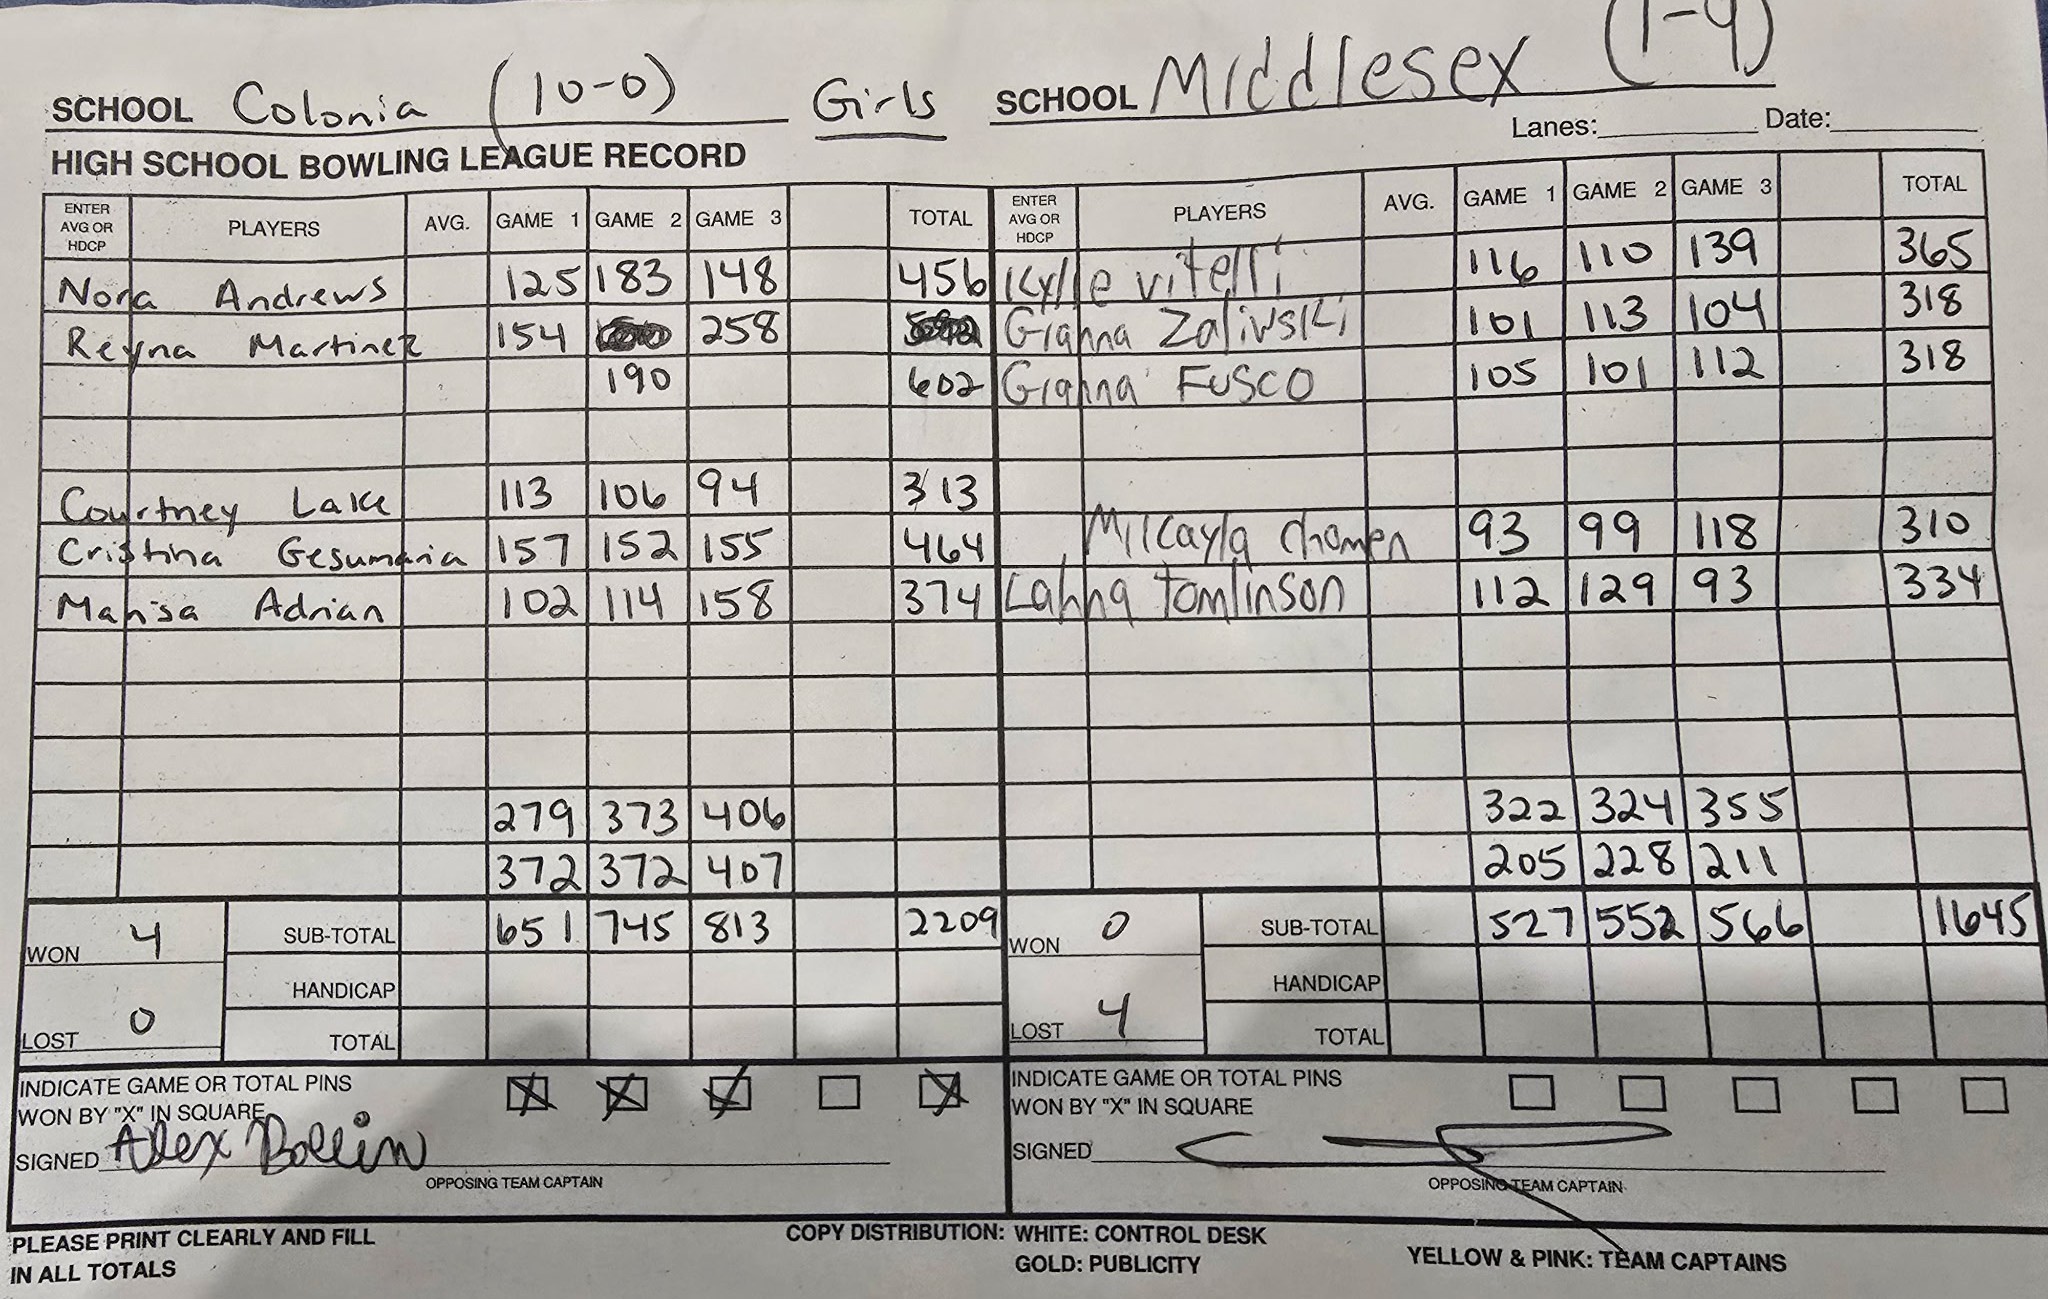 SCHOOL Colonia (10-0) Girls SCHOOL Middlesex (1-9)
Lanes: Date:
HIGH SCHOOL BOWLING LEAGUE RECORD
ENTER AVG OR HDCP PLAYERS AVG. GAME 1 GAME 2 GAME 3 TOTAL ENTER AVG OR HDCP PLAYERS AVG. GAME 1 GAME 2 GAME 3 TOTAL
Nora Andrews 125 183 148 456 Kylie vitelli 116 110 139 365
Reyna Martinez 154 258 Gianna Zaliwski 101 113 104 318
190 602 Gianna FUSCO 105 101 112 318
Courtney Lake 113 106 94 313
Cristina Gesumaria 157 152 155 464 93 99 118 310
Marisa Adrian 102 114 158 374 Tomlinson 112 129 93 334
279 373 406 322 324 355
372 372 407 205 228 211
WON 4 SUB-TOTAL 651 745 813 2209 WON 0 SUB-TOTAL 527 552 566 1645
HANDICAP HANDICAP
LOST 0 TOTAL LOST 4 TOTAL
INDICATE GAME OR TOTAL PINS INDICATE GAME OR TOTAL PINS
WON BY "X" IN SQUARE WON BY "X" IN SQUARE
SIGNED Alex SIGNED
OPPOSING TEAM CAPTAIN OPPOSING TEAM CAPTAIN
PLEASE PRINT CLEARLY AND FILL COPY DISTRIBUTION: WHITE: CONTROL DESK
IN ALL TOTALS GOLD: PUBLICITY YELLOW & PINK: TEAM CAPTAINS